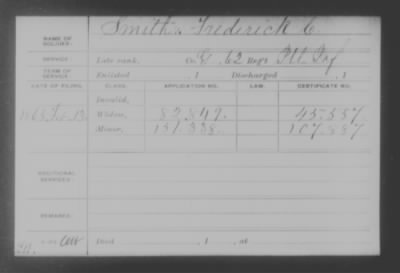 NAME OF SOLDIER: Smith, Frederick C.
SERVICE: Late rank, Co. G, 62 Reg't Ill. Inf
TERM OF SERVICE: Enlisted , 1 Discharged , 1
DATE OF FILING. CLASS. APPLICATION NO. LAW. CERTIFICATE NO.
Invalid,
Widow, 82,849. 45.557
Minor, 151.338. 107.587
ADDITIONAL SERVICES:
REMARKS:
Died , 1 , at